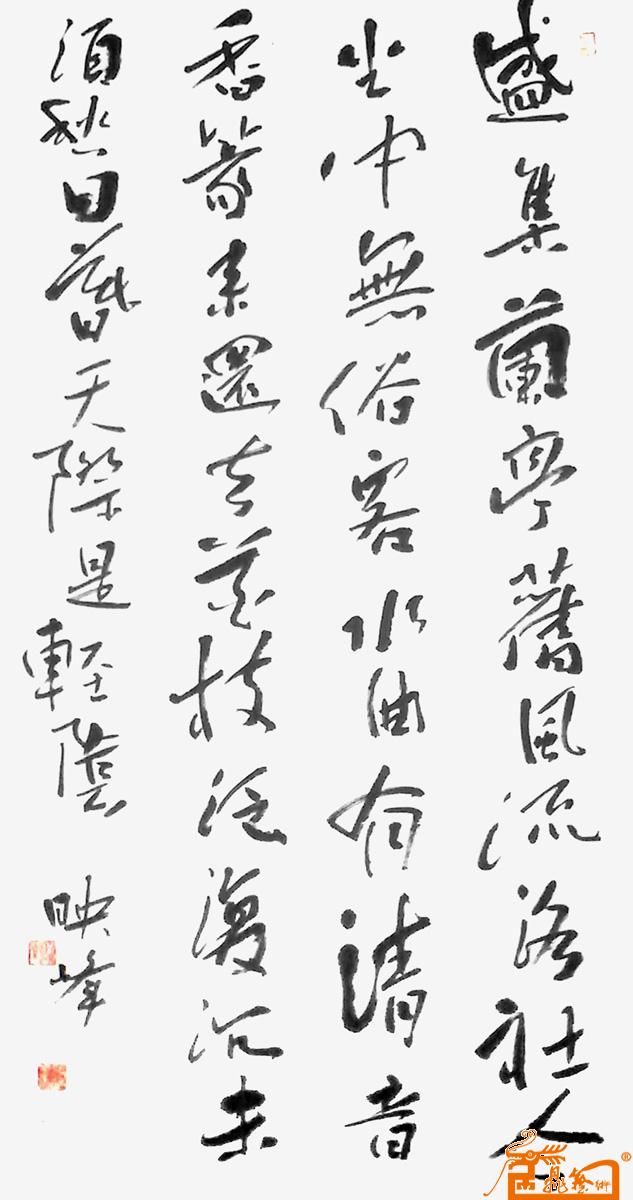 盛集蘭亭舊風流洛社今
坐中無俗客水曲有清音
香篆來還去花枝泛復沉未
須愁日暮天際是輕陰
映峰